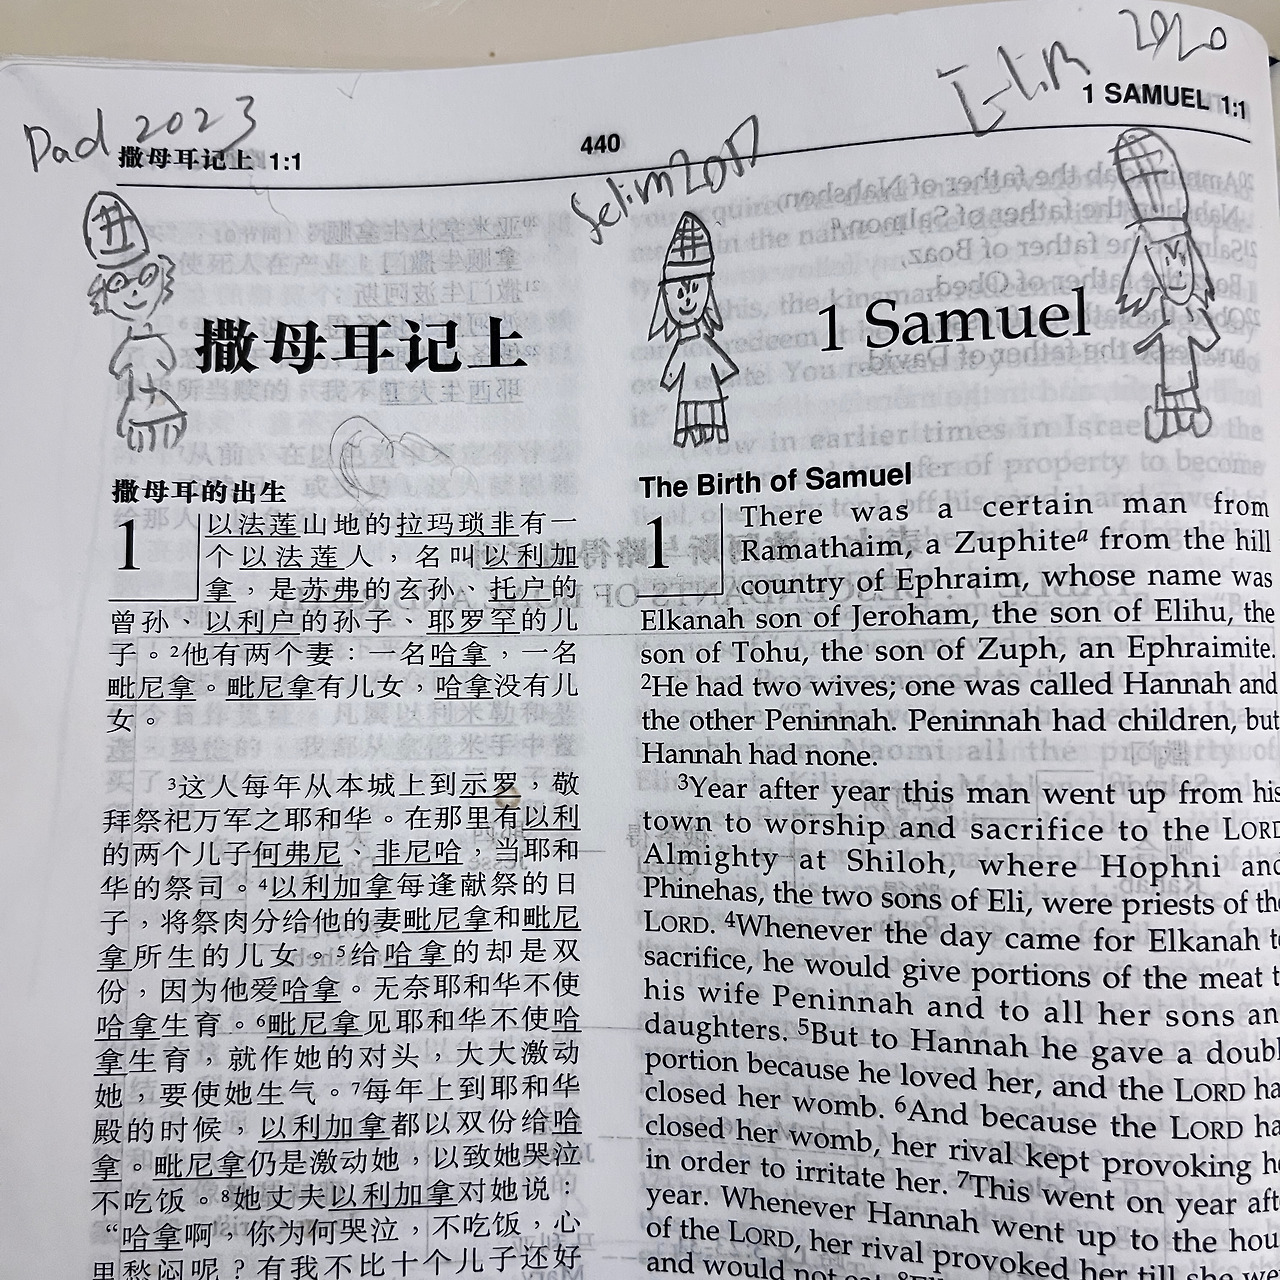 2020
1 SAMUEL 1:1
Dad 2023
撒母耳记上 1:1
440
Selim 2017
撒母耳记上
1 Samuel
撒母耳的出生
1 以法莲山地的拉玛琐非有一
个以法莲人，名叫以利加
拿，是苏弗的玄孙、托户的
曾孙、以利户的孙子、耶罗罕的儿
子。²他有两个妻：一名哈拿，一名
毗尼拿。毗尼拿有儿女，哈拿没有儿
女。
³这人每年从本城上到示罗，敬
拜祭祀万军之耶和华。在那里有以利
的两个儿子何弗尼、非尼哈，当耶和
华的祭司。⁴以利加拿每逢献祭的日
子，将祭肉分给他的妻毗尼拿和毗尼
拿所生的儿女。⁵给哈拿的却是双
份，因为他爱哈拿。无奈耶和华不使
哈拿生育。⁶毗尼拿见耶和华不使哈
拿生育，就作她的对头，大大激动
她，要使她生气。⁷每年上到耶和华
殿的时候，以利加拿都以双份给哈
拿。毗尼拿仍是激动她，以致她哭泣
不吃饭。⁸她丈夫以利加拿对她说：
“哈拿啊，你为何哭泣，不吃饭，心
里愁闷呢？有我不比十个儿子还好
The Birth of Samuel
1 There was a certain man from
Ramathaim, a Zuphiteᵃ from the hill
country of Ephraim, whose name was
Elkanah son of Jeroham, the son of Elihu, the
son of Tohu, the son of Zuph, an Ephraimite.
²He had two wives; one was called Hannah and
the other Peninnah. Peninnah had children, but
Hannah had none.
³Year after year this man went up from his
town to worship and sacrifice to the LORD
Almighty at Shiloh, where Hophni and
Phinehas, the two sons of Eli, were priests of the
LORD. ⁴Whenever the day came for Elkanah to
sacrifice, he would give portions of the meat t
his wife Peninnah and to all her sons an
daughters. ⁵But to Hannah he gave a doubl
portion because he loved her, and the LORD ha
closed her womb. ⁶And because the LORD ha
closed her womb, her rival kept provoking he
in order to irritate her. ⁷This went on year aft
year. Whenever Hannah went up to the hou
of the LORD, her rival provoked her till she we
and would not